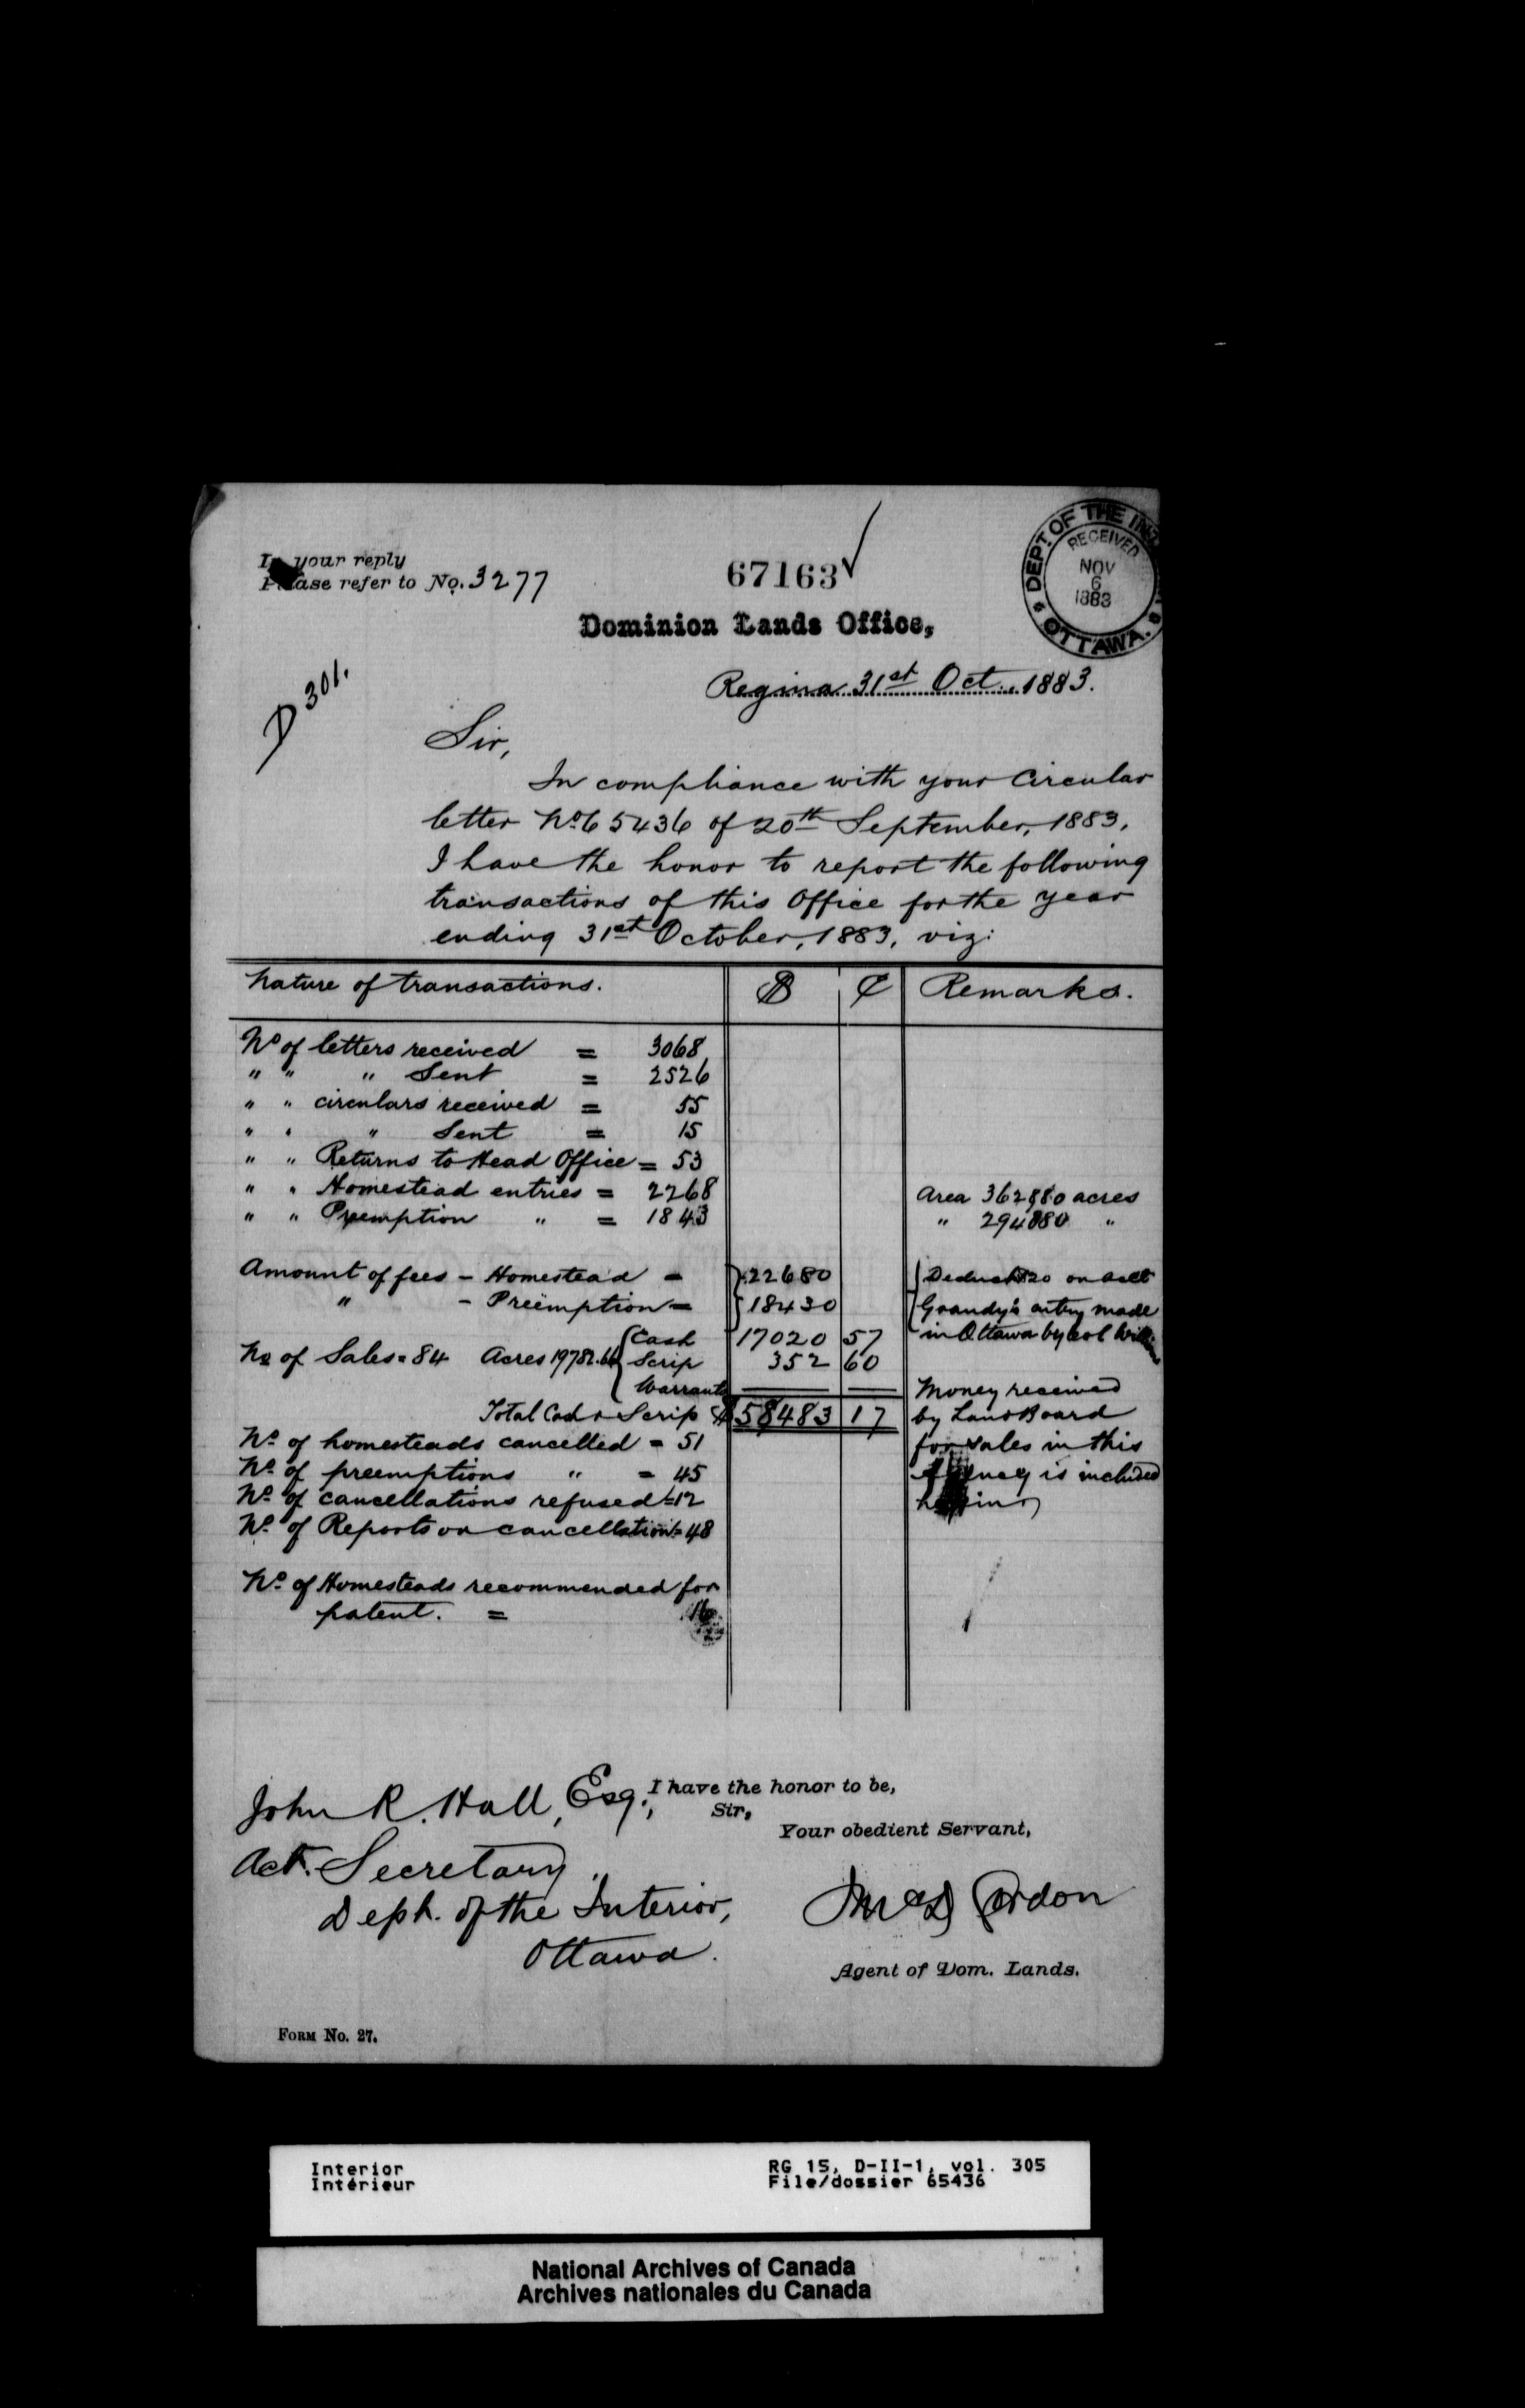 In your reply
Please refer to No. 3277
67163
DEPT. OF THE INT
RECEIVED
NOV
6
1883
OTTAWA.
Dominion Lands Office,
Regina 31st Oct. 1883.
D 301.
Sir,
In compliance with your Circular
letter No 65436 of 20th September, 1883,
I have the honor to report the following
transactions of this Office for the year
ending 31st October, 1883, viz:
Nature of transactions. $ ¢ Remarks.
No of letters received = 3068
" " " Sent = 2526
" " circulars received = 55
" " " Sent = 15
" " Returns to Head Office = 53
" " Homestead entries = 2268 Area 362880 acres
" " Preemption " = 1843 " 294880 "
Amount of fees - Homestead = 22680 Deduct $20 on acct
" - Preemption = 18430 Grandy's entry made
Cash 17020 57 in Ottawa by Col
No of Sales = 84 Acres 19782.66 Scrip 352 60
Warrants Money received
Total Cash & Scrip $58483 17 by Land Board
No of homesteads cancelled = 51 for sales in this
No of preemptions " = 45 Agency is included
No of cancellations refused = 12 herein
No of Reports on cancellation = 48
No of Homesteads recommended for
patent. = 16
I have the honor to be,
John R. Hall, Esq., Sir,
Your obedient Servant,
Act. Secretary,
Dept. of the Interior, Gordon
Ottawa.
Agent of Dom. Lands.
Form No. 27.
Interior RG 15, D-II-1, vol. 305
Intérieur File/dossier 65436
National Archives of Canada
Archives nationales du Canada